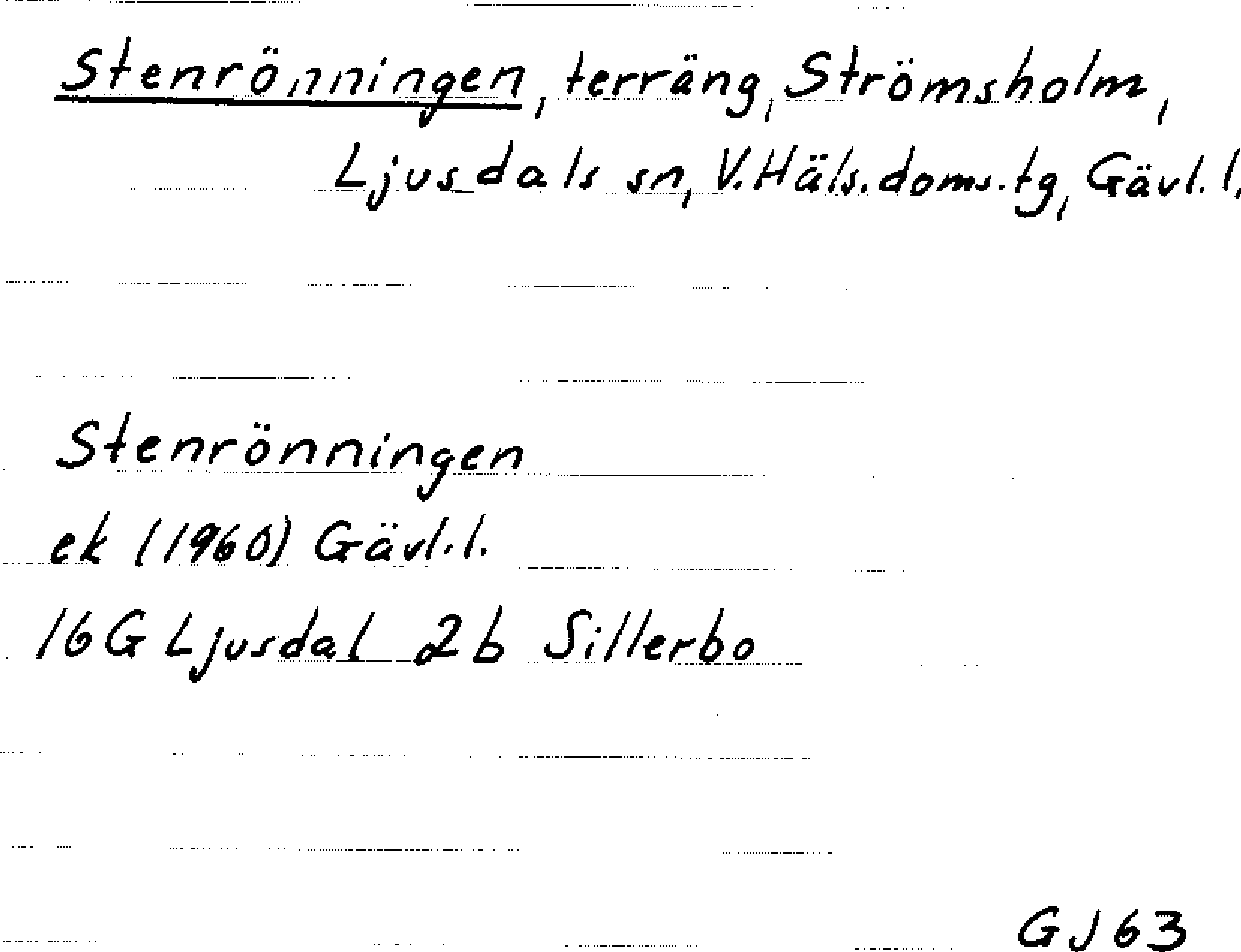 Stenrönningen, terräng, Strömsholm,
Ljusdals sn, V.Häls.doms.tg, Gävl.l.
Stenrönningen
ek (1960) Gävl.l.
16G Ljusdal 2b Sillerbo
GJ63